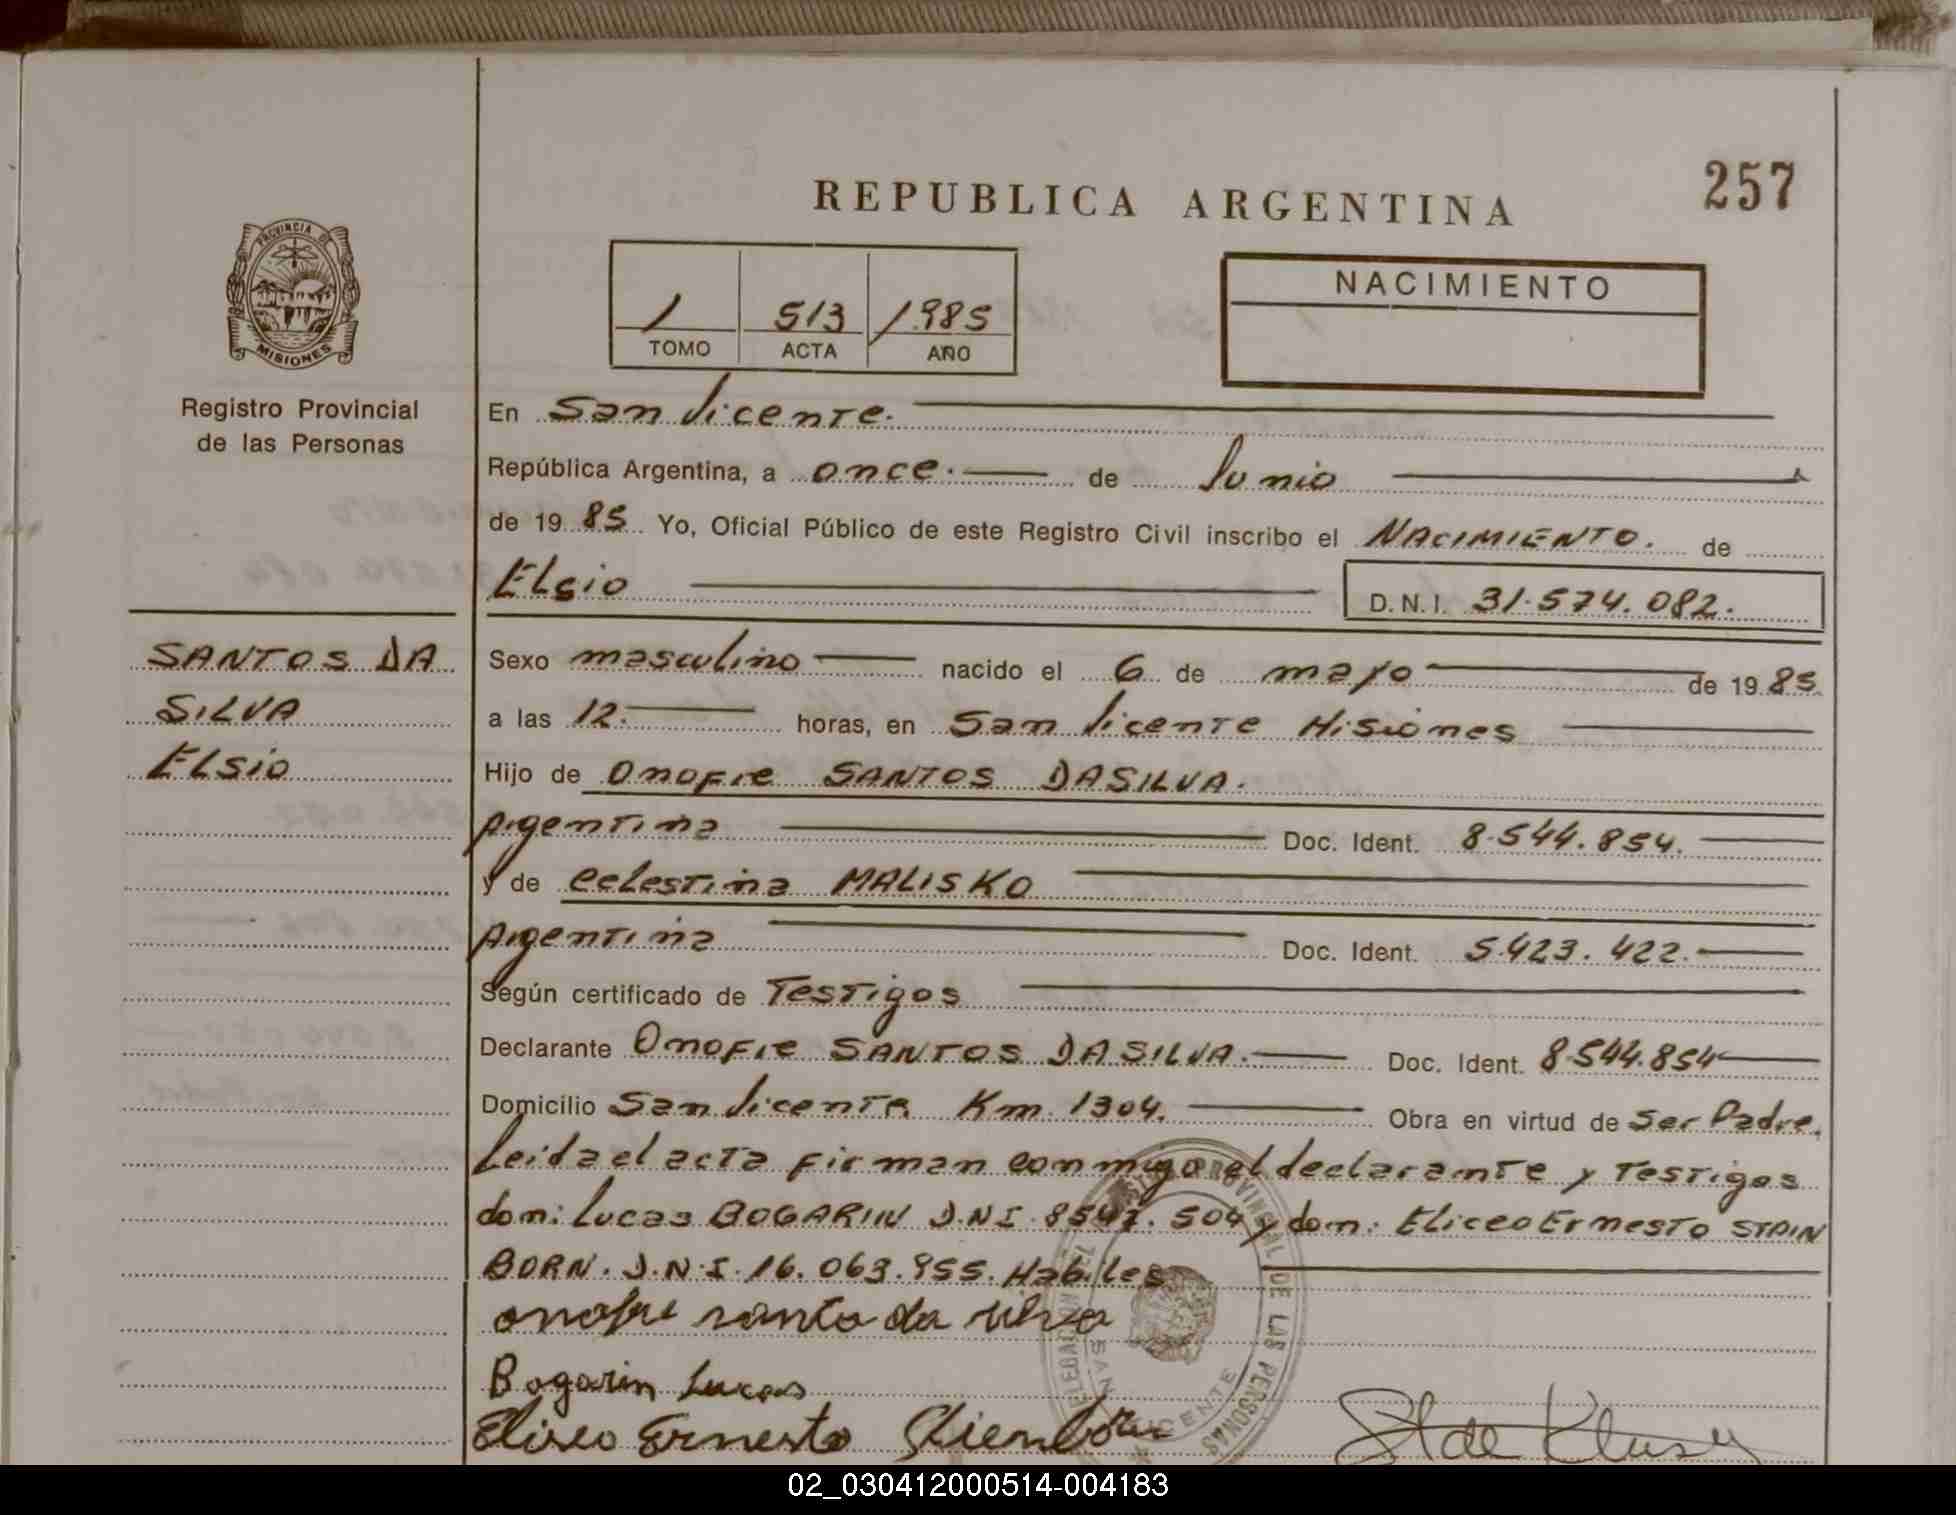 257
REPUBLICA ARGENTINA
PROVINCIA DE
MISIONES
Registro Provincial
de las Personas
1 513 1985
TOMO ACTA AÑO
NACIMIENTO
En San Vicente.
República Argentina, a once. de Junio
de 1985 Yo, Oficial Público de este Registro Civil inscribo el NACIMIENTO. de
ELsio D.N.I. 31.574.082.
SANTOS DA
SILVA
ELSIO
Sexo masculino nacido el 6 de mayo de 1985
a las 12. horas, en San Vicente Misiones
Hijo de Onofre SANTOS DASILVA.
Argentina Doc. Ident. 8.544.854.
y de Celestina MALISKO
Argentina Doc. Ident. 5.423.422.
Según certificado de Testigos
Declarante Onofre SANTOS DASILVA. Doc. Ident. 8.544.854
Domicilio San Vicente Km. 1304. Obra en virtud de Ser Padre.
Leida el acta firman conmigo el declarante y Testigos
don: Lucas BOGARIN D.N.I. 8547.504 y don: Eliceo Ernesto STAIN
BORN. D.N.I. 16.063.955. Habiles
onofre santo da silva
Bogarin Lucas
Eliseo Ernesto
02_030412000514-004183